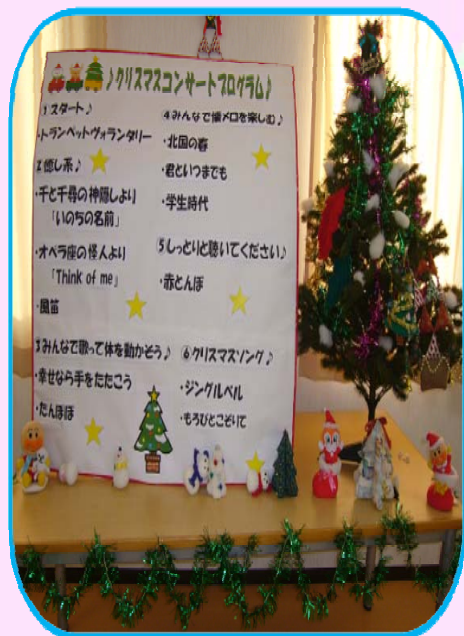 ♪クリスマスコンサートプログラム♪
①スタート♪
・トランペットヴォランタリー
2.癒し系♪
・千と千尋の神隠しより
「いのちの名前」
・オペラ座の怪人より
「Think of me」
・風笛
3みんなで歌って体を動かそう♪
・幸せなら手をたたこう
・たんぽぽ
④みんなで懐メロを楽しむ♪
・北国の春
・君といつまでも
・学生時代
⑤しっとりと聴いてください♪
・赤とんぼ
⑥クリスマスソング♪
・ジングルベル
・もろびとこぞりて